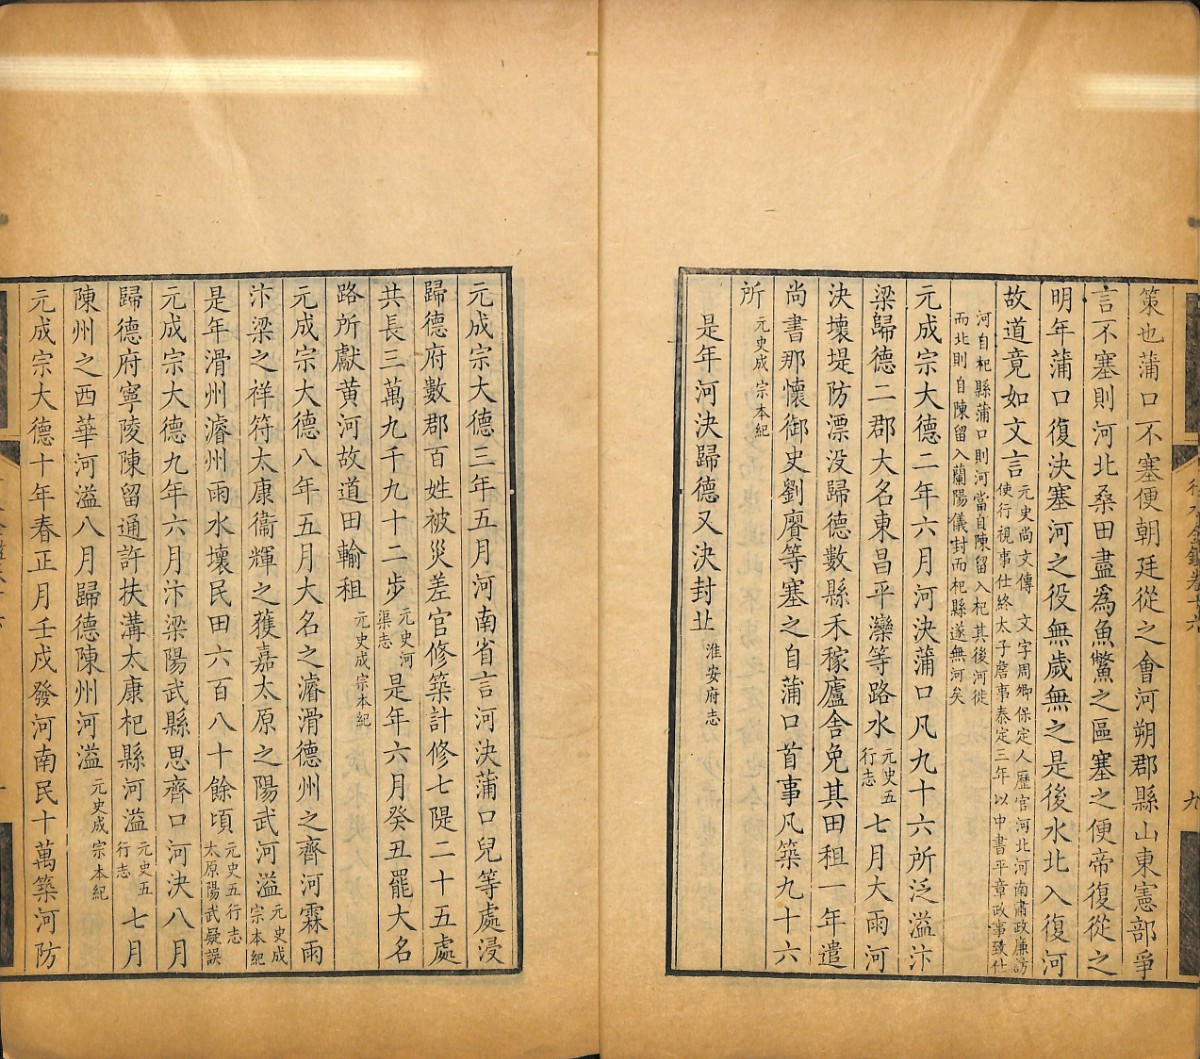 策也蒲口不塞便朝廷從之會河朔郡縣山東憲部爭
言不塞則河北桑田盡為魚鱉之區塞之便帝復從之
明年蒲口復決塞河之役無歲無之是後水北入復河
故道竟如文言元史尚文傳 文字周卿保定人歷官河北河南肅政廉訪
使行視事仕終太子詹事泰定三年以中書平章政事致仕
河自杞縣蒲口則河當自陳留入杞其後河徙
而北則自陳留入蘭陽儀封而杞縣遂無河矣
元成宗大德二年六月河決蒲口凡九十六所泛溢汴
梁歸德二郡大名東昌平灤等路水元史五行志七月大雨河
決壞堤防漂没歸德數縣禾稼廬舍免其田租一年遣
尚書那懷御史劉賡等塞之自蒲口首事凡築九十六
所元史成宗本紀
是年河決歸德又決封丘淮安府志
行水金鑑卷十六
九
元成宗大德三年五月河南省言河決蒲口兒等處浸
歸德府數郡百姓被災差官修築計修七隄二十五處
共長三萬九千九十二步元史河渠志是年六月癸丑罷大名
路所獻黄河故道田輸租元史成宗本紀
元成宗大德八年五月大名之濬滑德州之齊河霖雨
汴梁之祥符太康衞輝之獲嘉太原之陽武河溢元史成宗本紀
是年滑州濬州雨水壞民田六百八十餘頃元史五行志太原陽武疑誤
元成宗大德九年六月汴梁陽武縣思齊口河決八月
歸德府寧陵陳留通許扶溝太康杞縣河溢元史五行志七月
陳州之西華河溢八月歸德陳州河溢元史成宗本紀
元成宗大德十年春正月壬戍發河南民十萬築河防